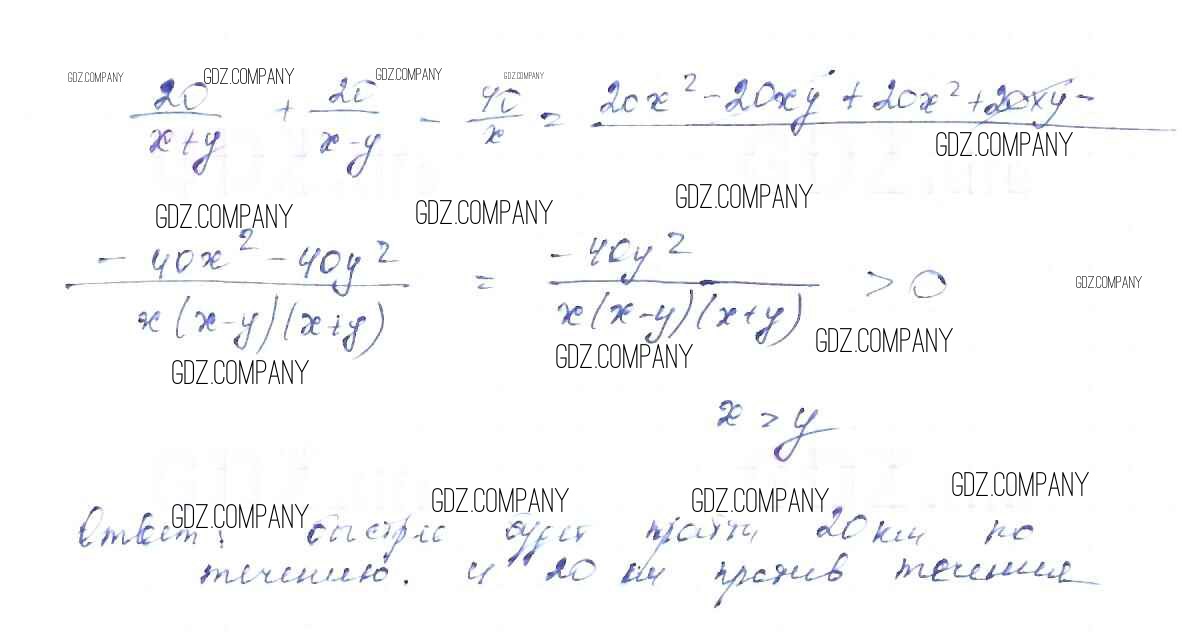 GDZ.COMPANY GDZ.COMPANY GDZ.COMPANY GDZ.COMPANY
20/(x+y) + 20/(x-y) - 40/x = 20x² - 20xy + 20x² + 20xy -
GDZ.COMPANY
GDZ.COMPANY GDZ.COMPANY GDZ.COMPANY
(- 40x² - 40y²)/(x(x-y)(x+y)) = (-40y²)/(x(x-y)(x+y)) > 0
GDZ.COMPANY
GDZ.COMPANY GDZ.COMPANY GDZ.COMPANY
x > y
GDZ.COMPANY GDZ.COMPANY GDZ.COMPANY GDZ.COMPANY
Ответ: быстрее будет пройти 20 км по
течению. и 20 км против течения